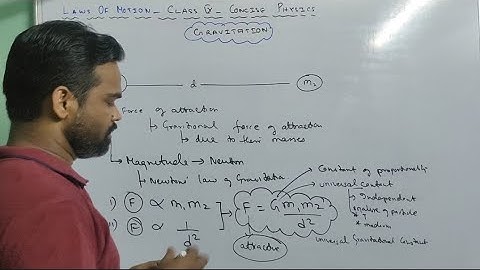 LAWS OF MOTION - CLASS IX - CONCISE PHYSICS
GRAVITATION
d
m2
Force of attraction
Gravitional force of attraction
due to their masses
Magnitude → Newton
Newton's law of Gravitation
i) F ∝ m1m2
ii) F ∝ 1/d²
F = G m1m2/d²
attractive
Constant of proportionality
universal constant
independent
nature of particle
* medium
universal Gravitational Constant